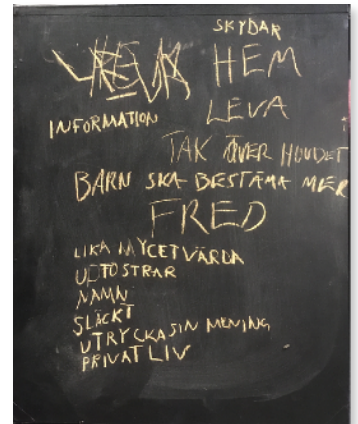 SKYDAR
HEM
LEVA
INFORMATION
TAK ÖVER HUUDET
BARN SKA BESTÄMA MER
FRED
LIKA MYCET VÄRDA
NAMN
SLÄCKT
UTRYCKA SIN MENING
PRIVAT LIV